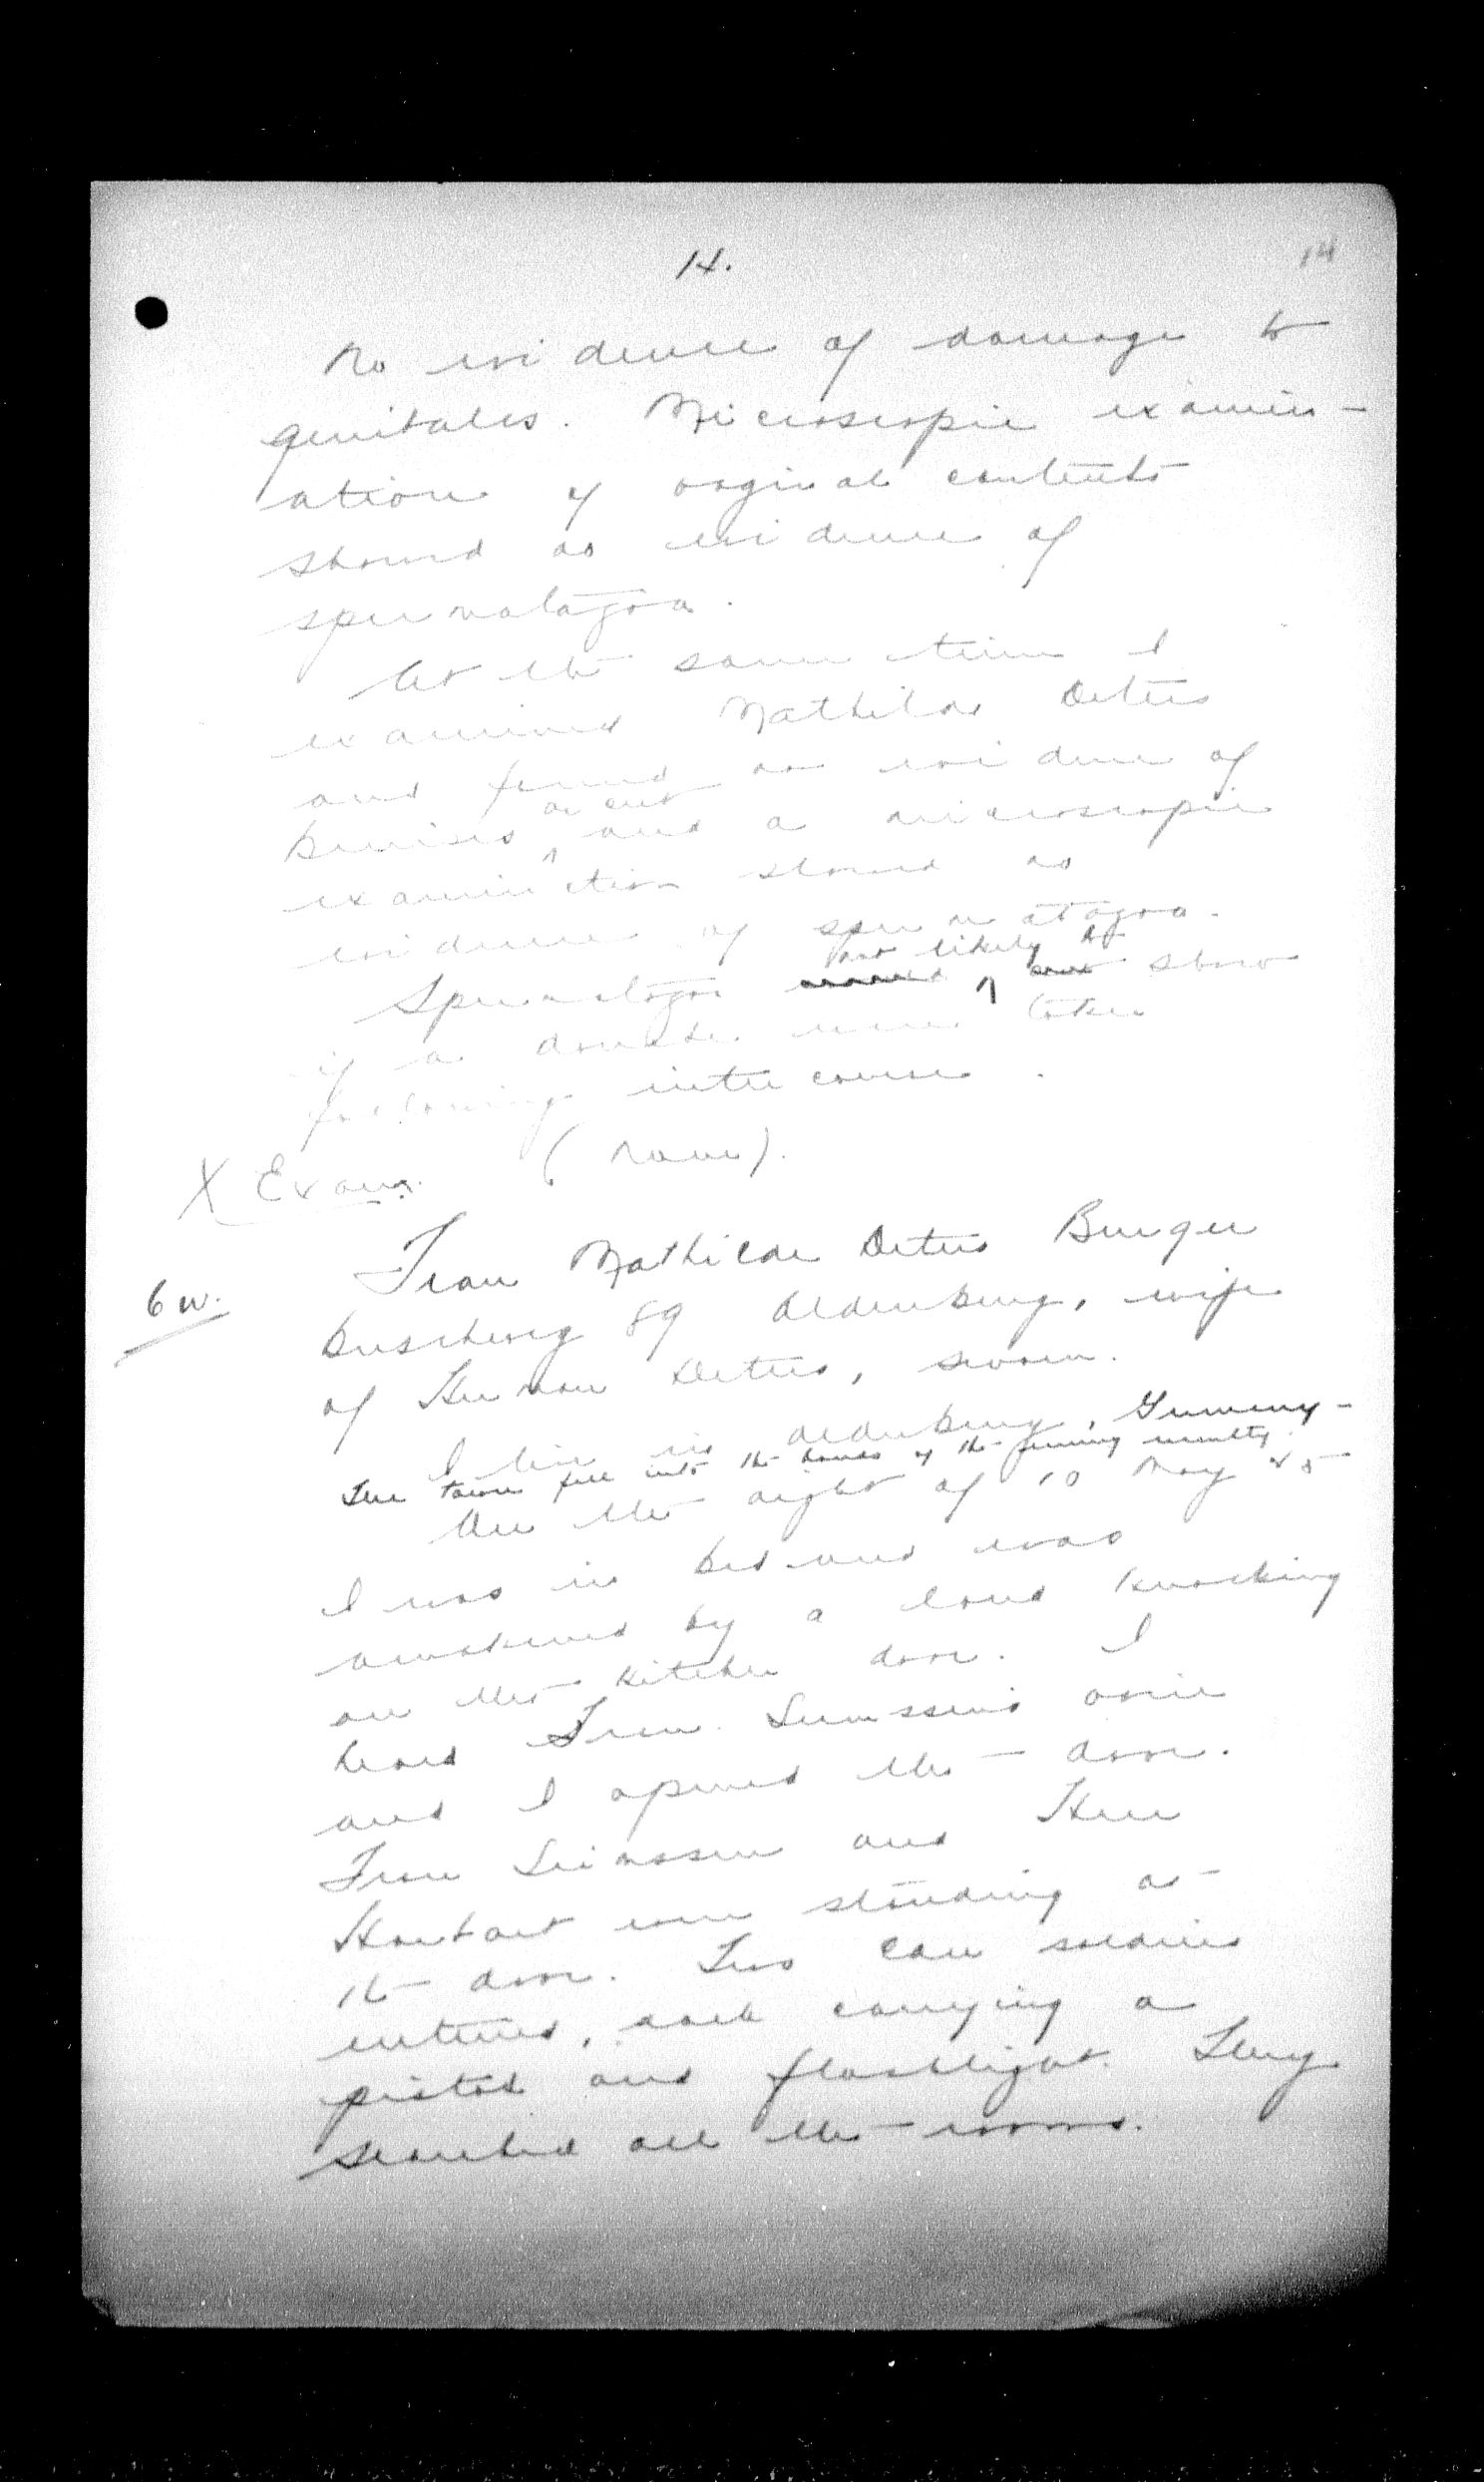 14.
14
No evidence of damage to
genitales. Microscopic examin-
ation of vaginal contents
showed no evidence of
spermatazoa.
At the same time I
examined Mathilde Deters
and found no evidence of
or cut
bruises and a microscopic
examination showed no
evidence of spermatazoa.
not likely to
Spermatazoa show
if a douche were taken
following intercourse.
X Exam. (None).
6 W. Frau Mathilde Deters Burger
buschweg 89 Oldenburg, wife
of Herman Deters, sworn.
I live in Oldenburg, Germany-
The town fell into the hands of the enemy
On the night of 10 May 45
I was in bed and was
awakened by a loud knocking
on the kitchen door. I
heard Frau voice
and I opened the door.
Frau and Herr
were standing at
the door. Two Cdn soldiers
entered, each carrying a
pistol and flashlight. They
searched all the rooms.